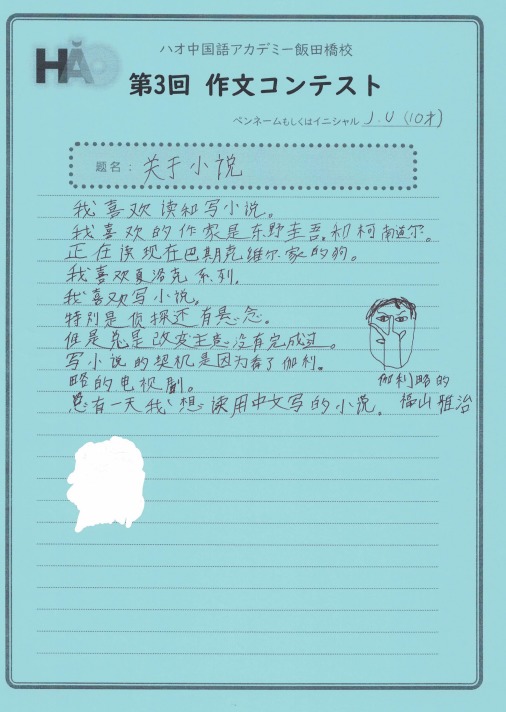 HÃO
ハオ中国語アカデミー飯田橋校
第3回 作文コンテスト
ペンネームもしくはイニシャル J.U (10才)
题名： 关于小说
我喜欢读和写小说。
我喜欢的作家是东野圭吾。和柯南道尔。
正在读现在巴斯克维尔家的狗。
我喜欢夏洛克系列。
我喜欢写小说。
特别是侦探还有悬念。
但是总是改变主意没有完成过。
写小说的契机是因为看了伽利。
略的电视剧。
总有一天我想读用中文写的小说。
伽利略的
福山雅治